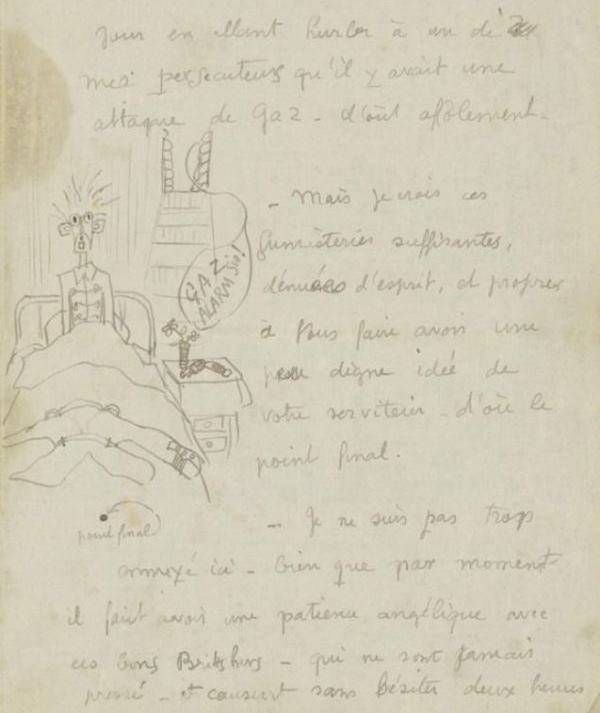 jour en allant hurler à un de
mes persecuteurs qu'il y avait une
attaque de gaz - d'où affolement -
- Mais je crois ces
fumisteries suffisantes,
dénuées d'esprit, et propres
à vous faire avoir une
peu digne idée de
votre serviteur - d'où le
point final.
GAZ
ALARM SIR!
point final
- Je ne suis pas trop
ici - bien que par moment
il faut avoir une patience angélique avec
ces bons Britishers - qui ne sont jamais
pressé - et causent sans hésiter deux heures